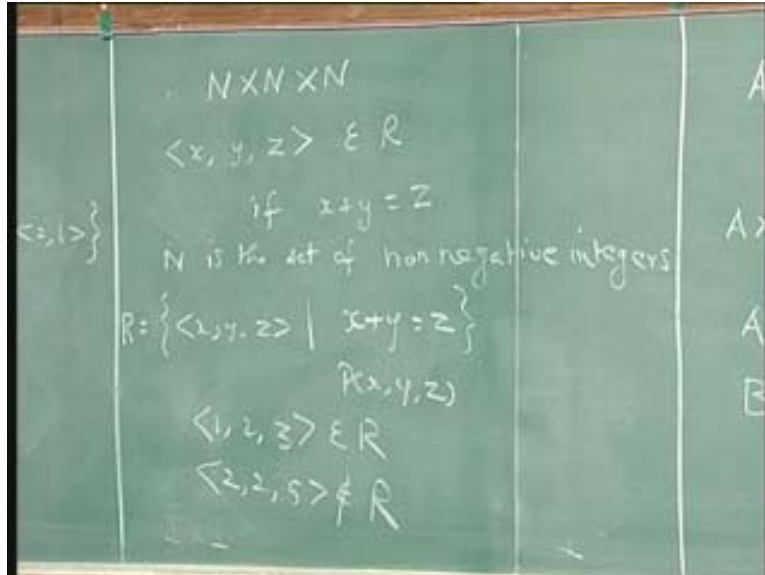 N X N X N
<x, y, z> ε R
if x+y = z
<2,1>}
N is the set of non negative integers
R = {<x, y, z> | x+y = z}
P(x, y, z)
<1, 2, 3> ε R
<2, 2, 5> ∉ R
A
A X
A
B